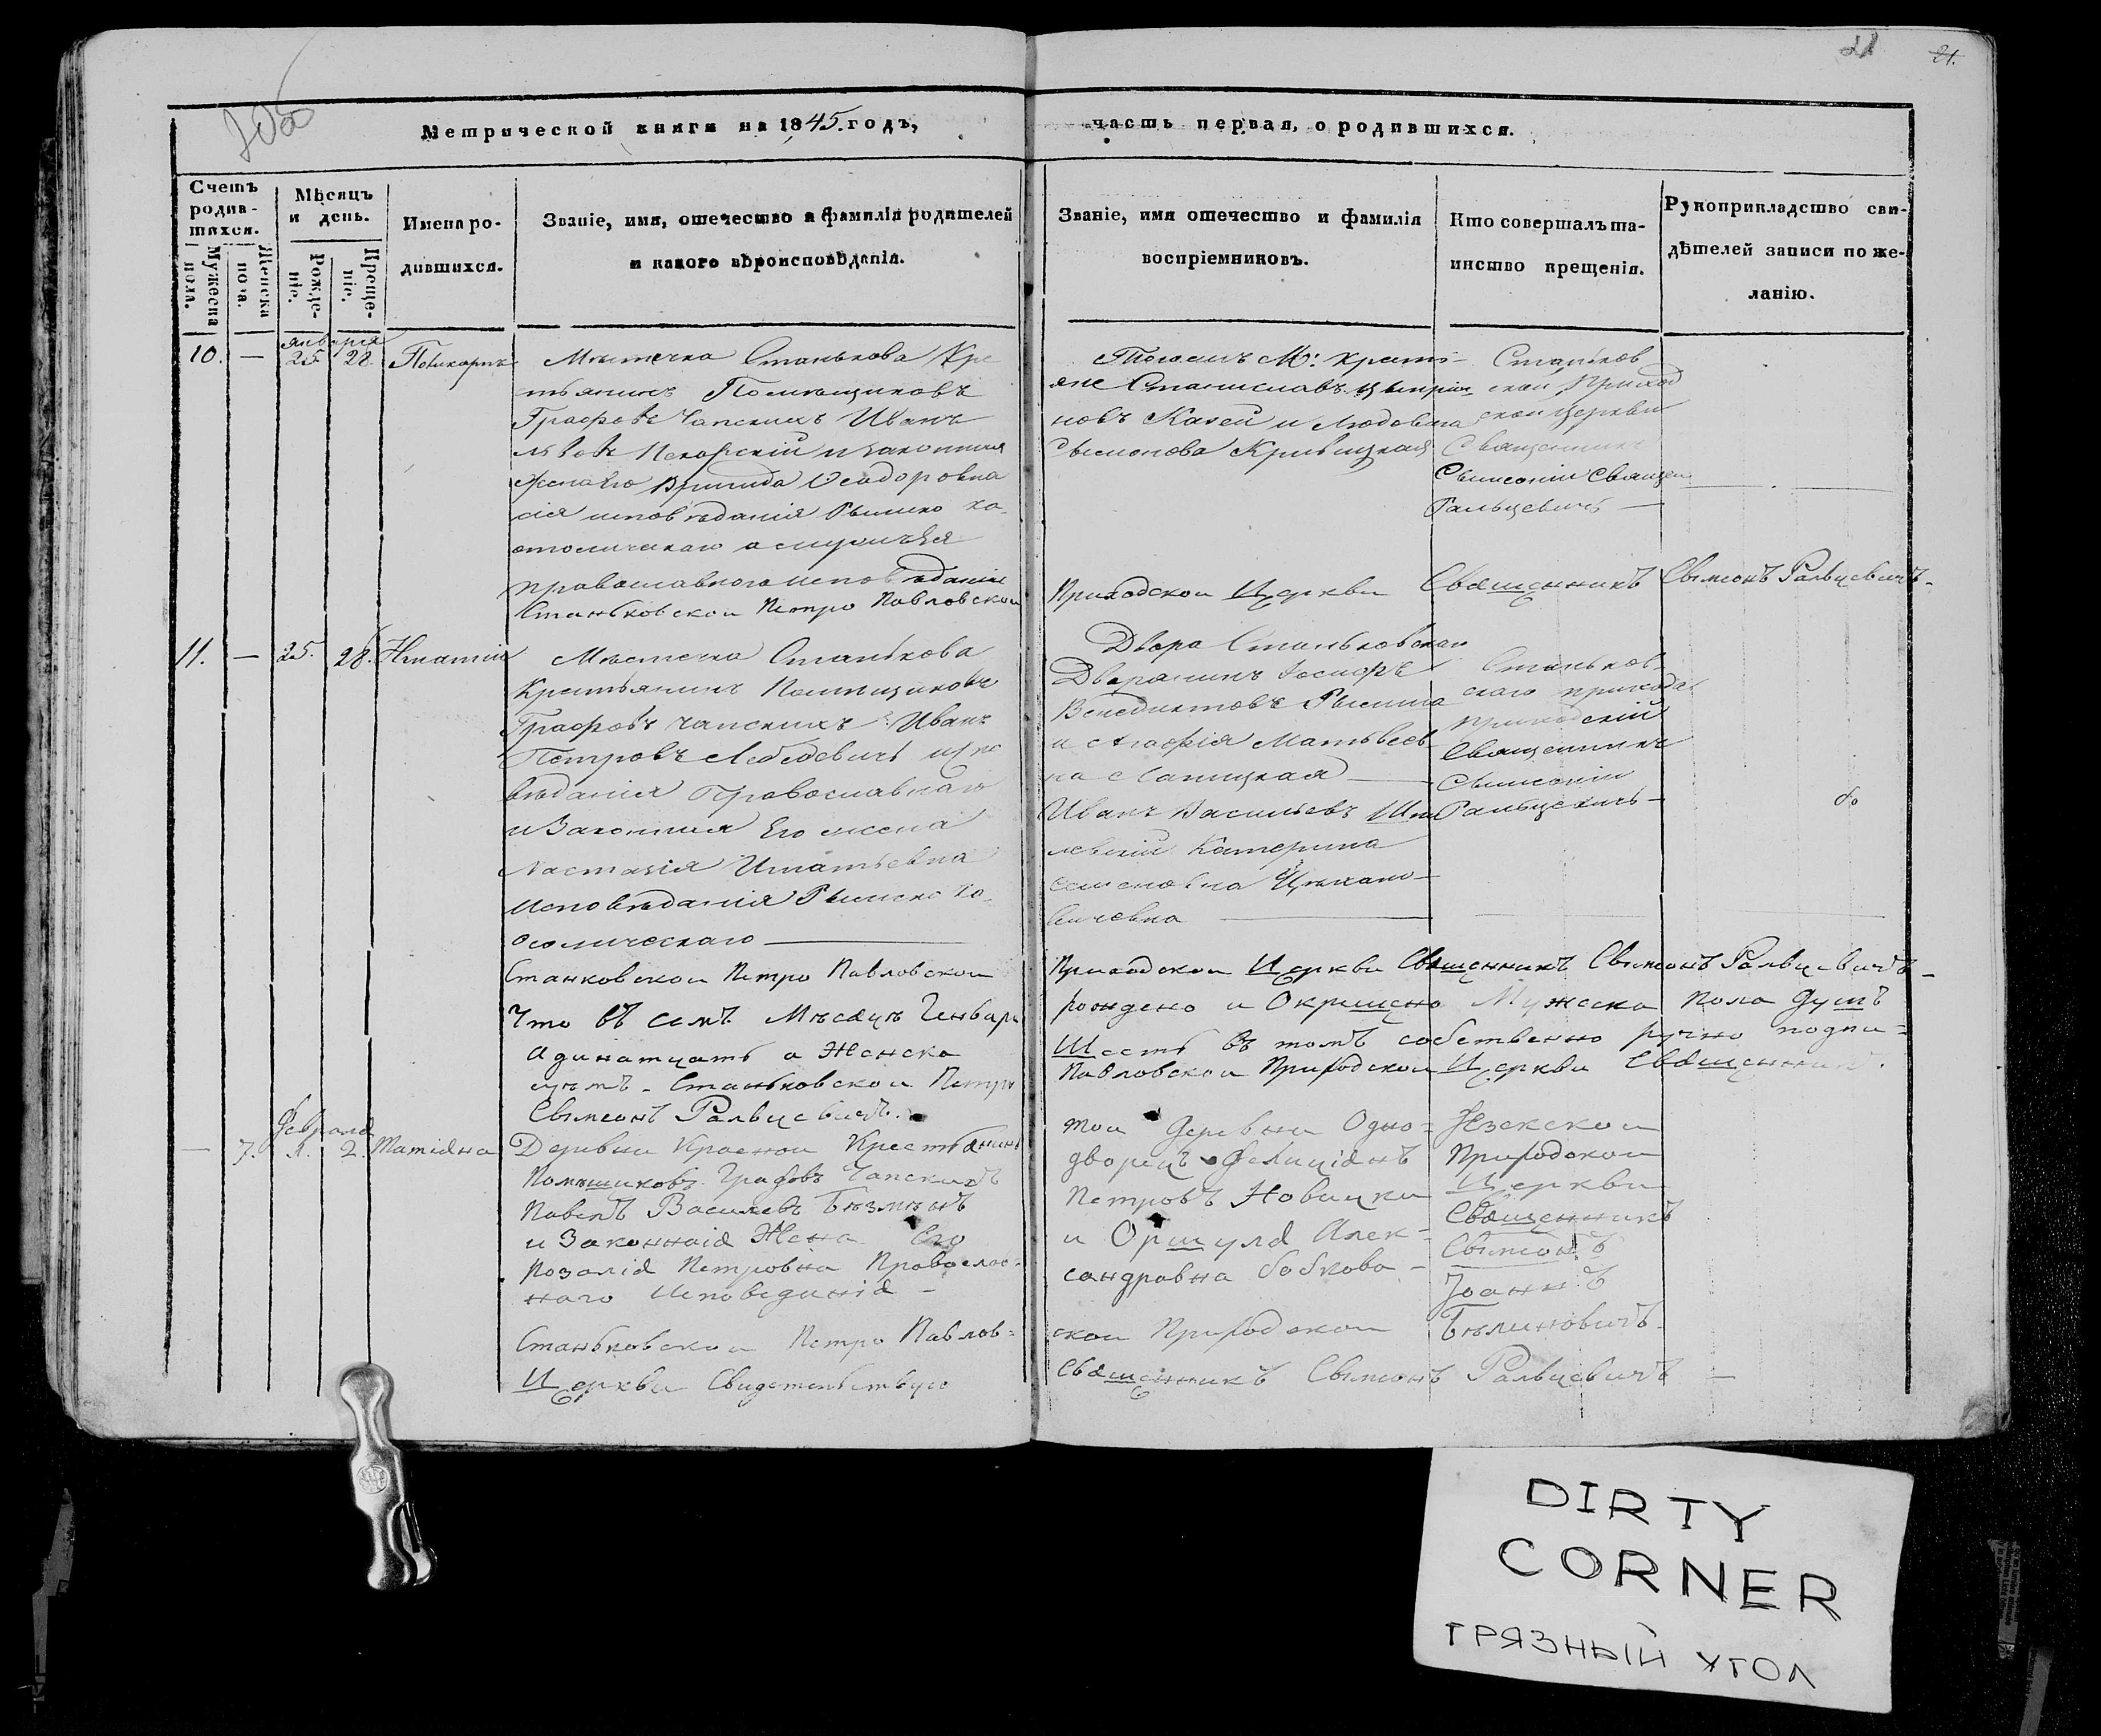 21
21.
Метрической книги на 1845. годъ,
часть первая, о родившихся.
Счетъ родив-шихся.
Мужеска пола.
Женска пола.
Мѣсяцъ и день.
Рожде-ніе.
Креще-ніе.
Имена ро-
дившихся.
Званіе, имя, отечество и фамилія родителей
и какого вѣроисповѣданія.
Званіе, имя отечество и фамилія
воспріемниковъ.
Кто совершалъ та-
инство крещенія.
Рукоприкладство сви-
дѣтелей записи по же-
ланію.
января
10. — 25 28. Поликарпъ
Мѣстечка Станькова Кре
стьянинъ Помѣщиковъ
Графовъ Чапскихъ Иванъ
и законная
жена Его Бригида Ѳеодоровна
сія исповѣданія Римско ка-
толическаго
православнаго исповѣданія
Станьковской Петро Павловской
М: кресть-
яне Станиславъ
новъ и Людовика
Сымонова
Станьков
ской Приход
ской церкви
Священникъ
Сымеонъ
Ральцевичъ —
Приходской Церкви Священникъ Сѵмеонъ Ральцевичъ-
11. — 25. 28. Игнатій
Мѣстечка Станькова
Крестьянинъ Помѣщиковъ
Графовъ Чапскихъ Иванъ
Петровъ Лебедевичъ испо
вѣданія Православнаго
и Законная Его жена
Настазія Игнатьевна
Исповѣданія Римско ка-
толическаго
Двора Станьковскаго
Дворянинъ Іосифъ
Венедиктовъ
и Агафія Матвеев
на
Иванъ Васильевъ Шпи
левскій Катерина
Семеновна
вичевна
Станьков-
скаго прихода
приходскій
Священникъ
Сымеонъ
Ральцевичъ —
Станковской Петро Павловской
Приходской Церкви Священникъ Сѵмеонъ Ральцевичъ-
Что въ семъ Мѣсяцъ Генвари
рождено и Окрещено Мужеска пола душъ
Адинатцать а Женска
Шесть въ томъ собственно ручно подпи=
суемъ - Станьковской Петро
Павловской Приходской Церкви Священникъ.
Сѵмеонъ Ральцевичъ.
Февраля
— 7. 1. 2. Татіяна
Деревни Красной Крестьянинъ
Помѣшиковъ Графовъ Чапскихъ
Павелъ Василевъ
и Законная Жена Его
Розалія Петровна Православ=
наго Исповеданія —
Станьковской Петро Павлов=
Церкви Свидетельствую
той Деревни Одно-
дворецъ Фелиціянъ
Петровъ Новицки
и Оршуля Алек-
сандравна Бобкова -
ской Приходской
Священникъ Сѵмеонъ Ральцевичъ —
Приходской
Церкви
Священникъ
Іоаннъ
DIRTY
CORNER
ГРЯЗНЫЙ УГОЛ